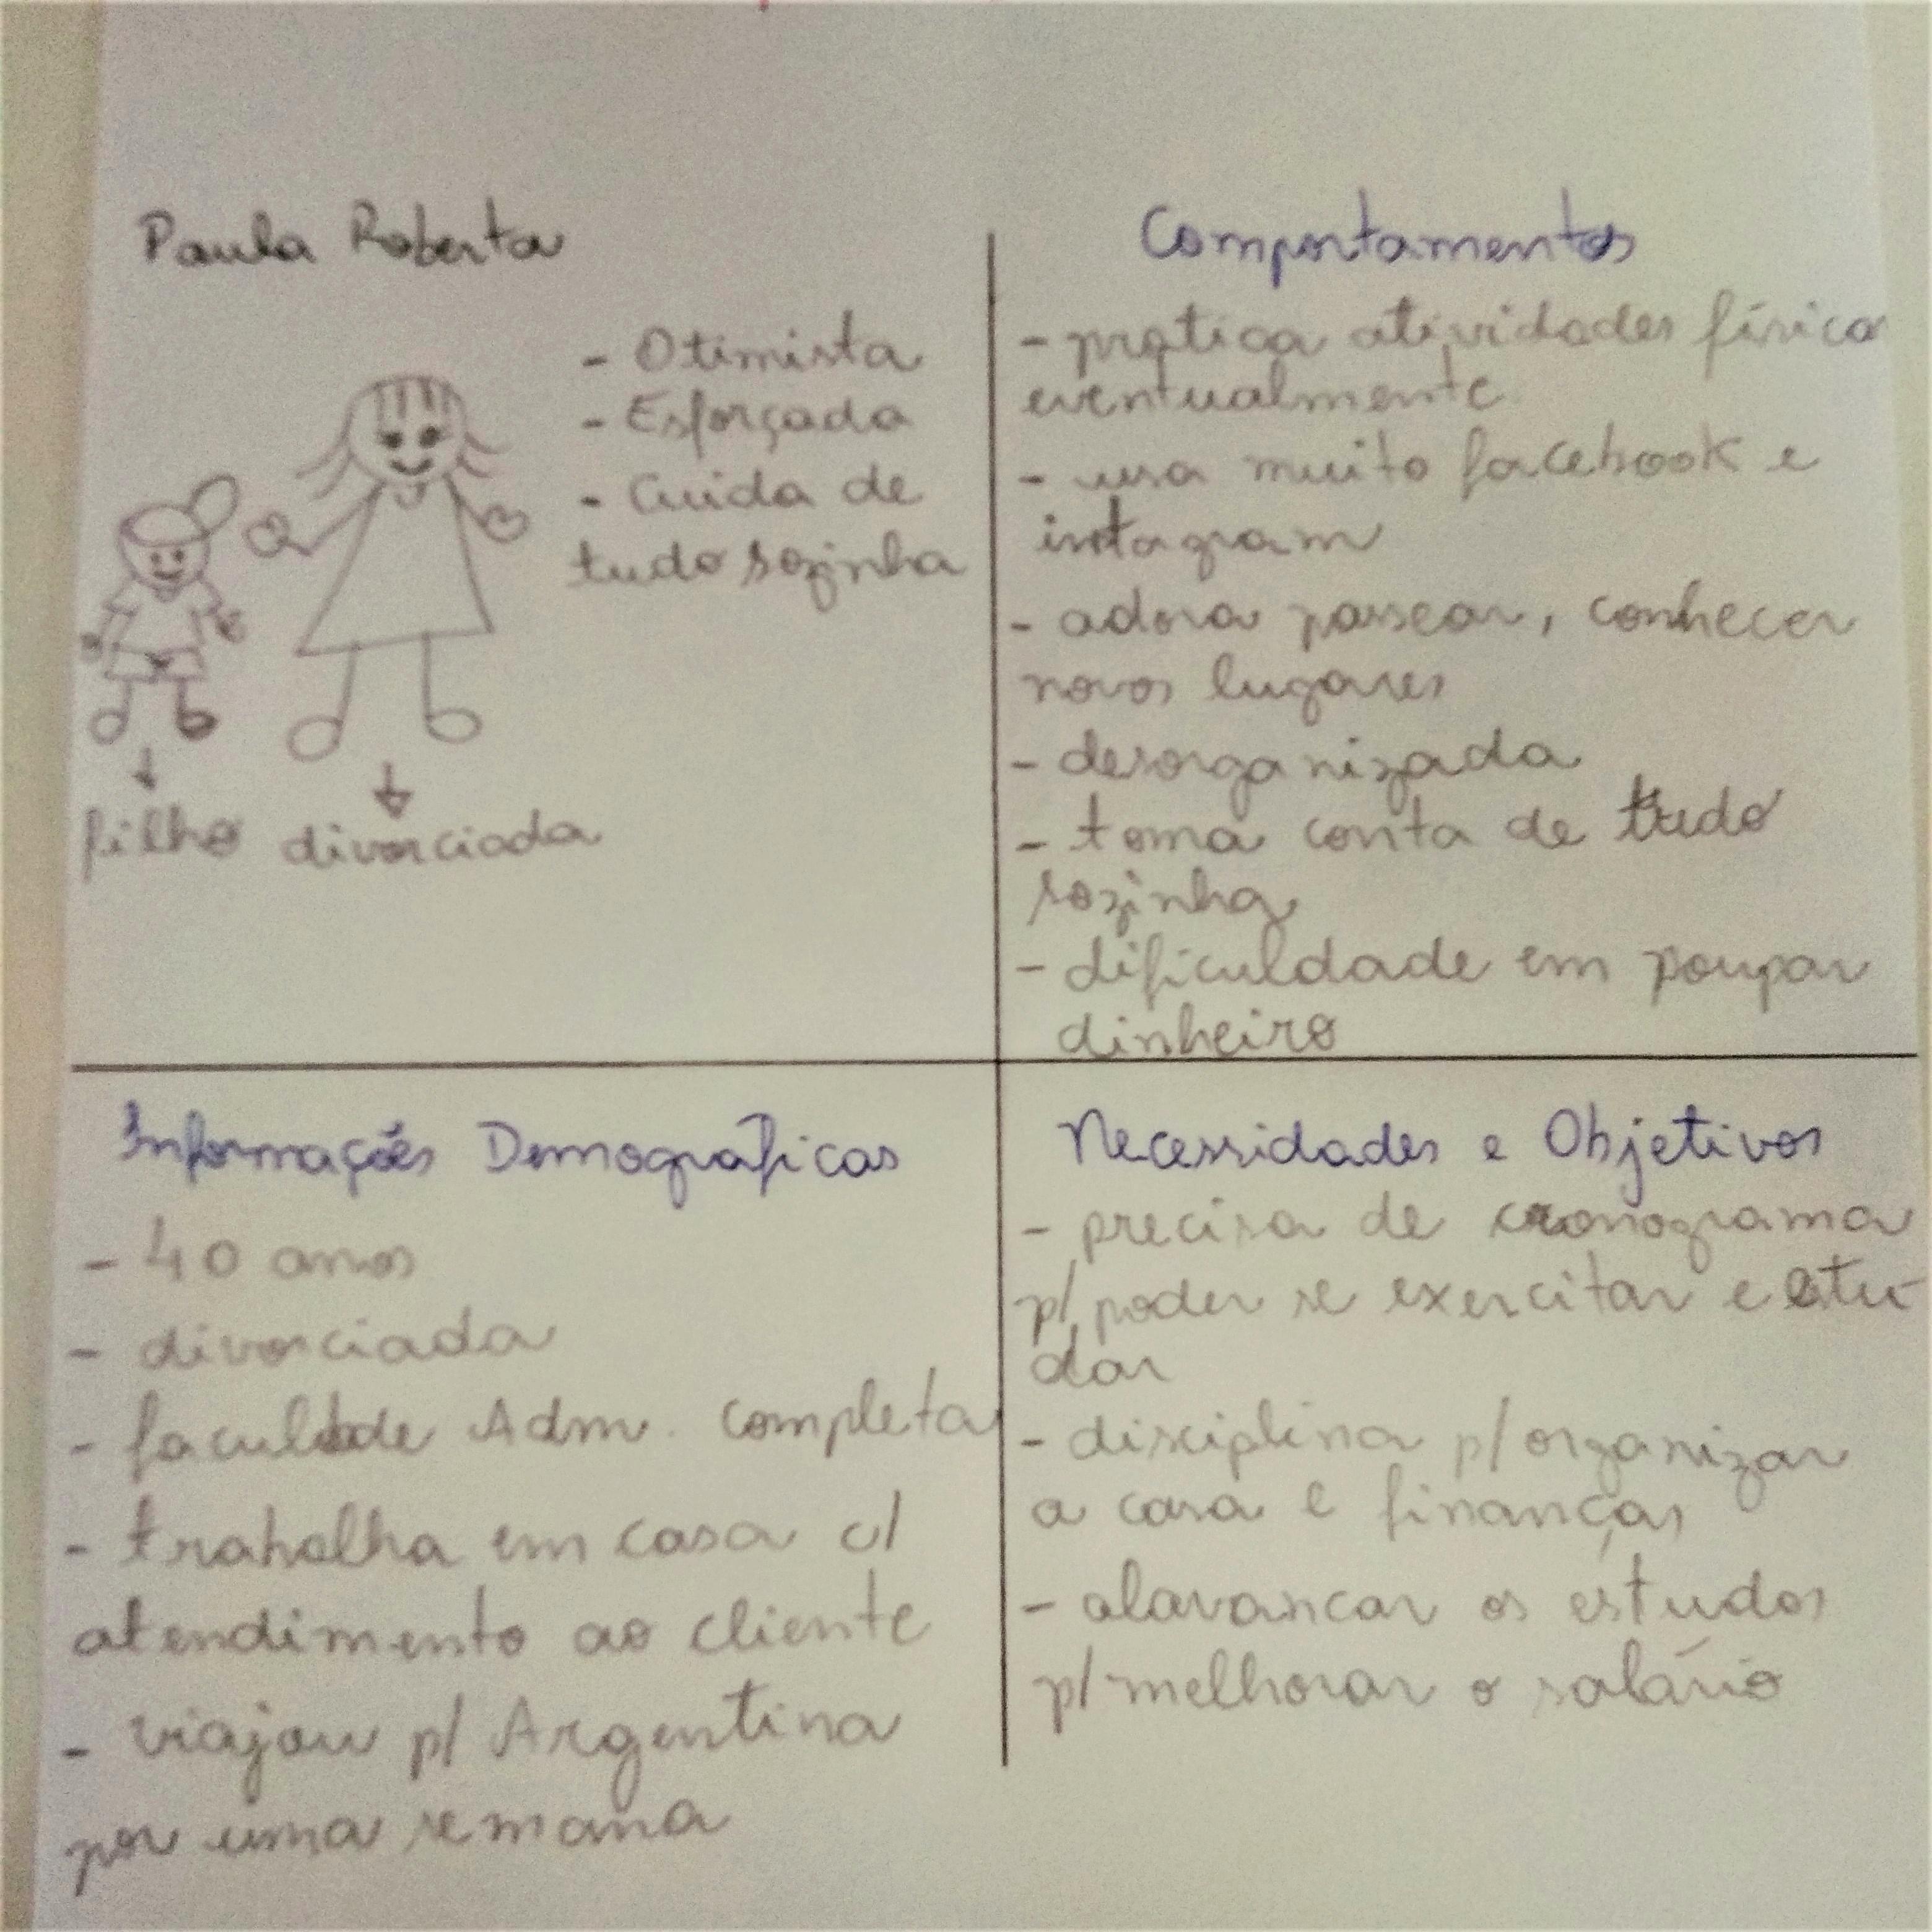 Paula Roberta
- Otimista
- Esforçada
- Cuida de
tudo sozinha
filho divorciada
Comportamentos
- pratica atividades física
eventualmente
- usa muito facebook e
instagram
- adora passear, conhecer
novos lugares
- desorganizada
- toma conta de tudo
sozinha
- dificuldade em poupar
dinheiro
Informações Demográficas
- 40 anos
- divorciada
- faculdade Adm. completa
- trabalha em casa c/
atendimento ao cliente
- viajou p/ Argentina
por uma semana
Necessidades e Objetivos
- precisa de cronograma
p/ poder se exercitar e estu-
dar
- disciplina p/ organizar
a casa e finanças
- alavancar os estudos
p/ melhorar o salário